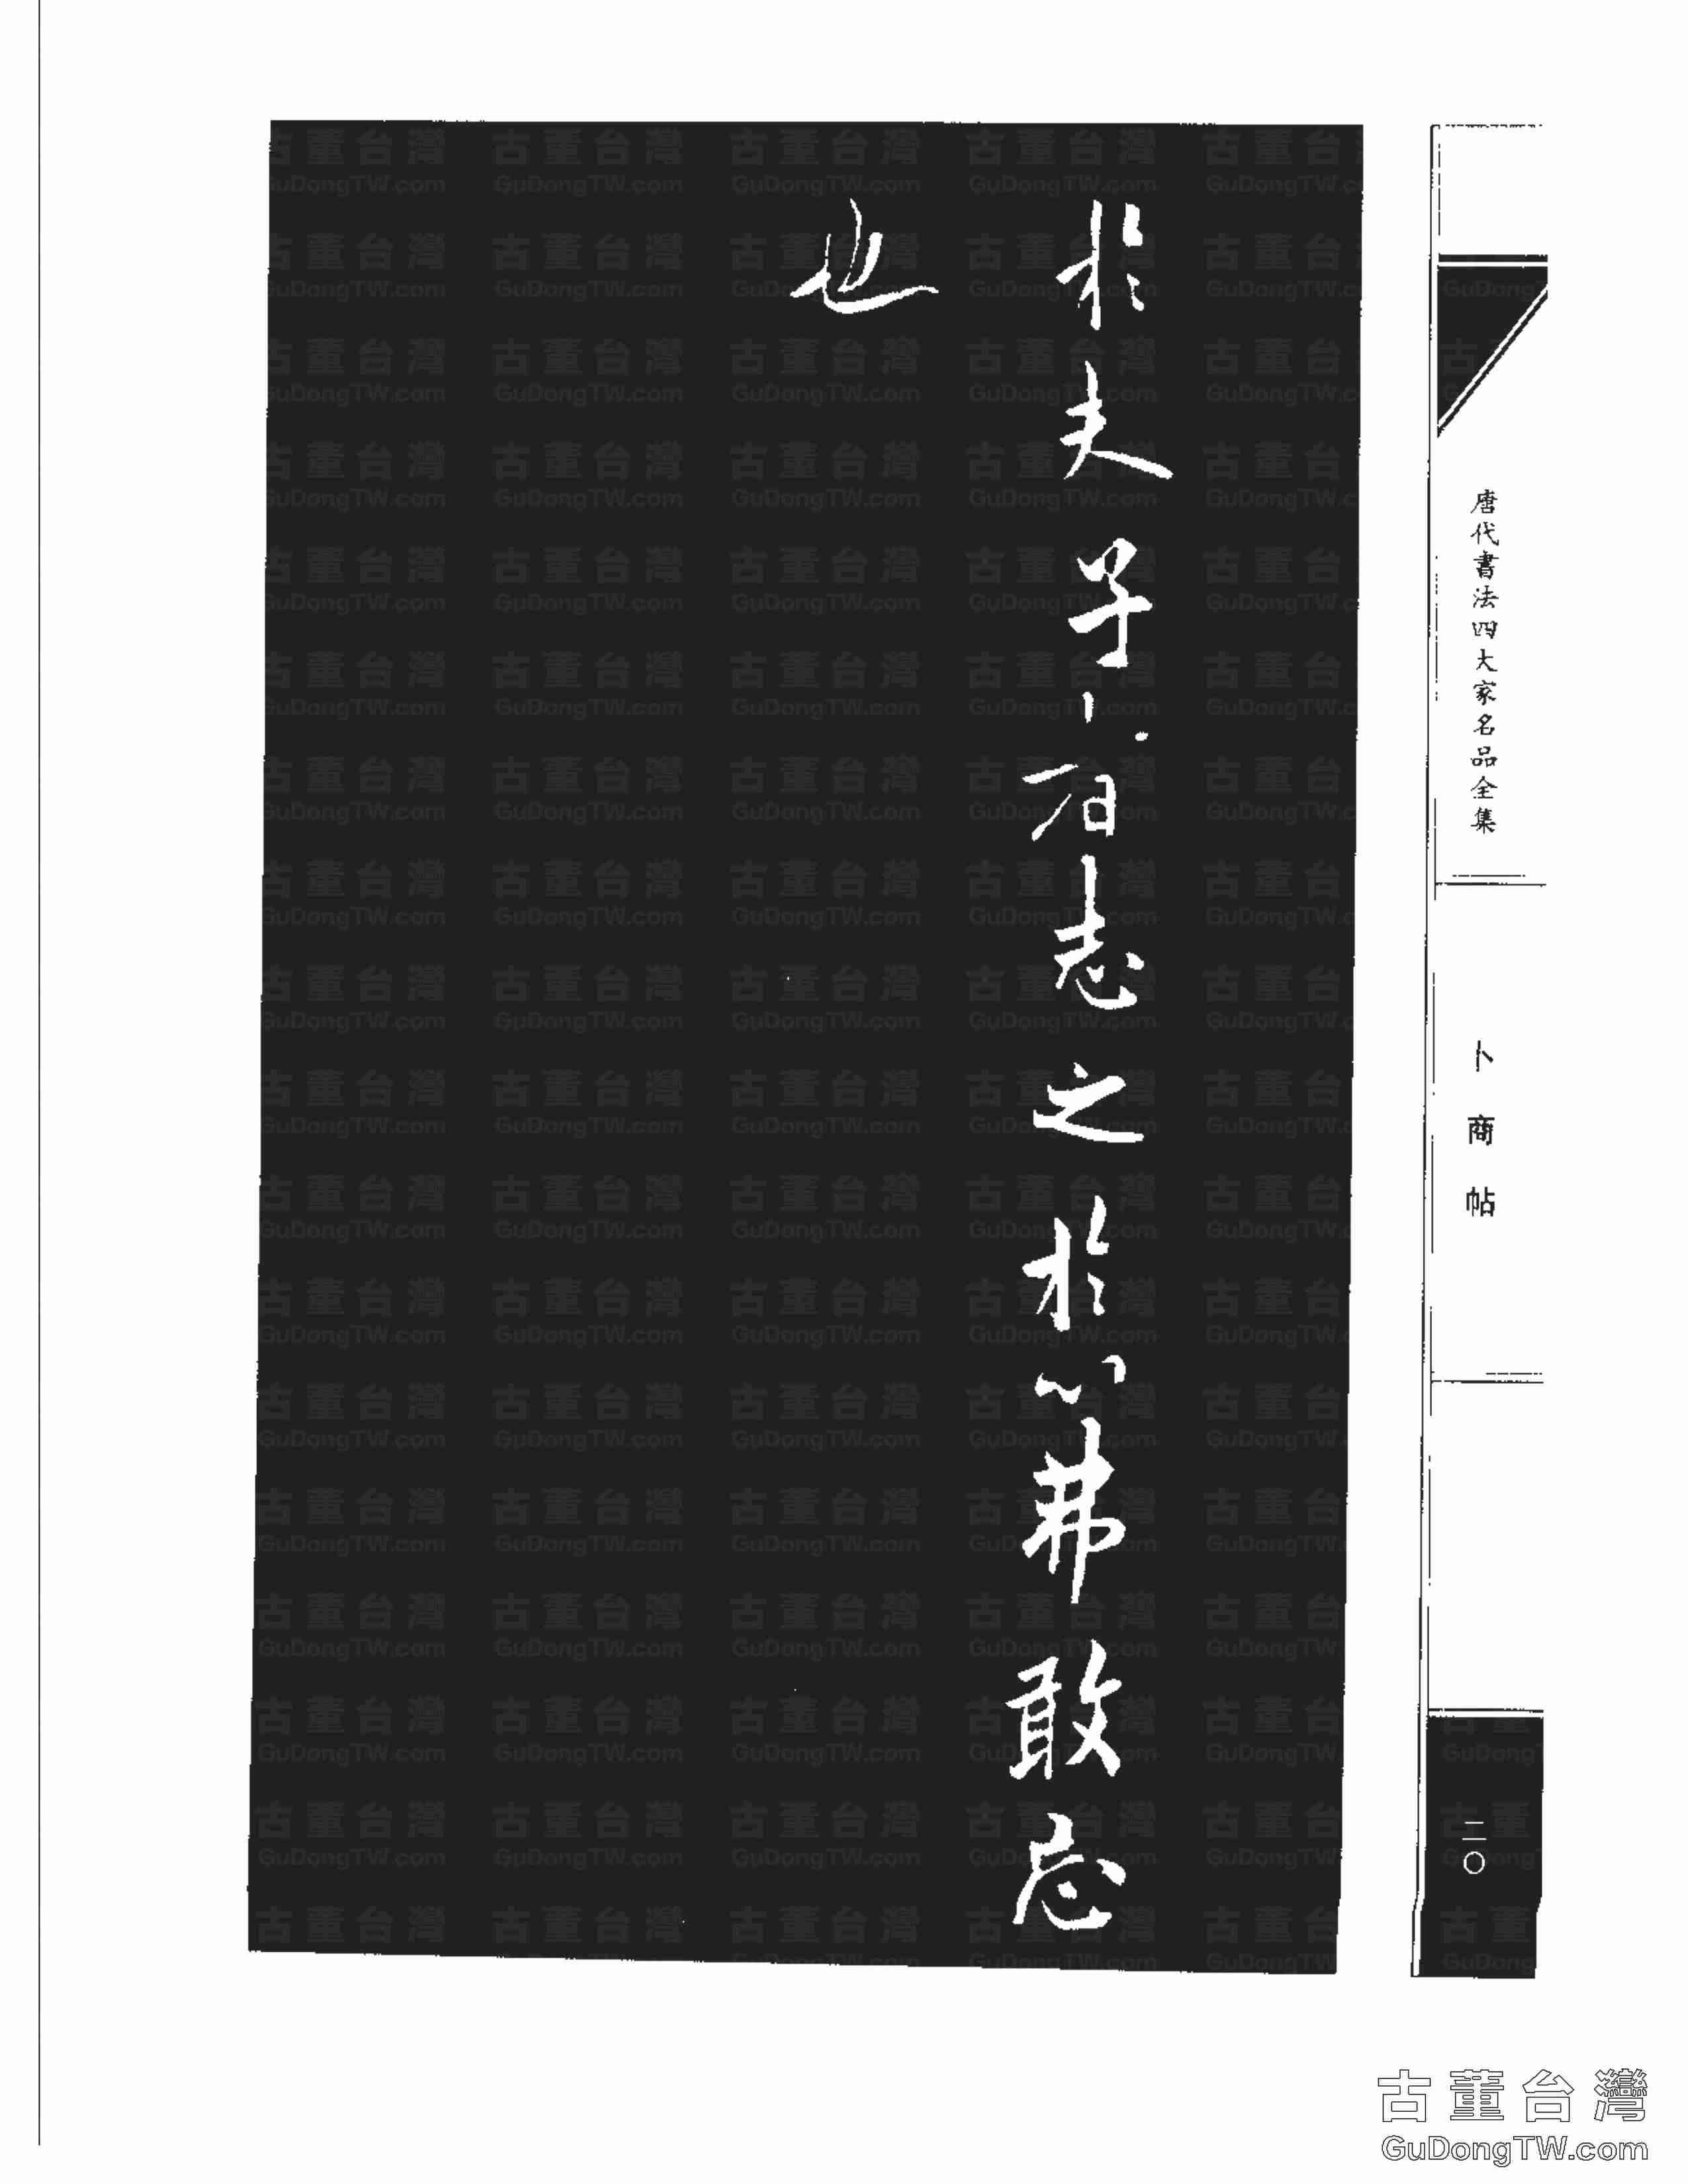 唐代書法四大家名品全集
卜商帖
二〇
於夫子者志之於心弗敢忘
也
古董台灣
GuDongTW.com